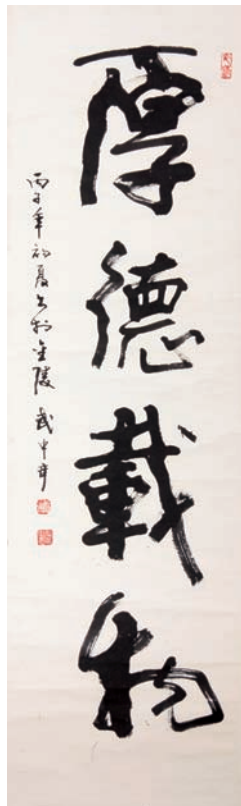 厚德載物
丙子年初夏書於金陵 武中奇